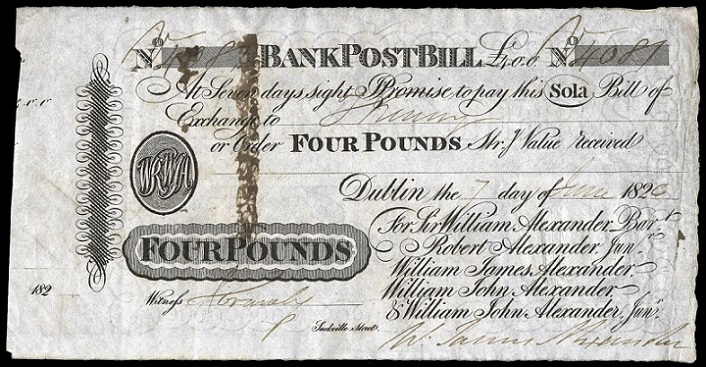 No. 4081 BANK POST BILL £4.0.0 No. 4081
At Seven days sight I Promise to pay this Sola Bill of
Exchange to
or Order FOUR POUNDS Str.g Value received
Dublin the 7 day of June 1820
For Sir William Alexander Bar.t
Robert Alexander Jun.r
FOUR POUNDS
William James Alexander
182
William John Alexander
Witness
& William John Alexander Jun.r
Sackville Street
W. James Alexander